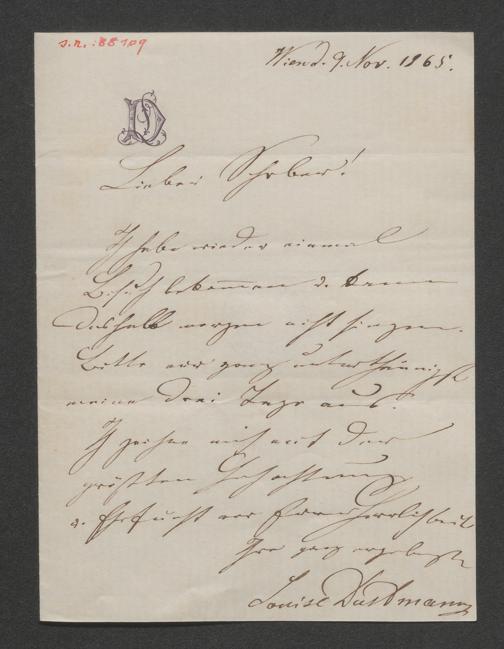 s.n.:88109
Wien d. 9. Nov. 1865.
LD
Lieber Schober!
Ich habe wieder einmal
Besuch bekommen u. kann
deshalb morgen nicht singen.
Bitte mir ganz unterthänigst
meine drei Tage aus.
Ich zeichne mich mit der
größten Hochachtung
u. Ehrfurcht vor Eurer Herrlichkeit
Ihre ganz ergebenste
Louise Dustmann